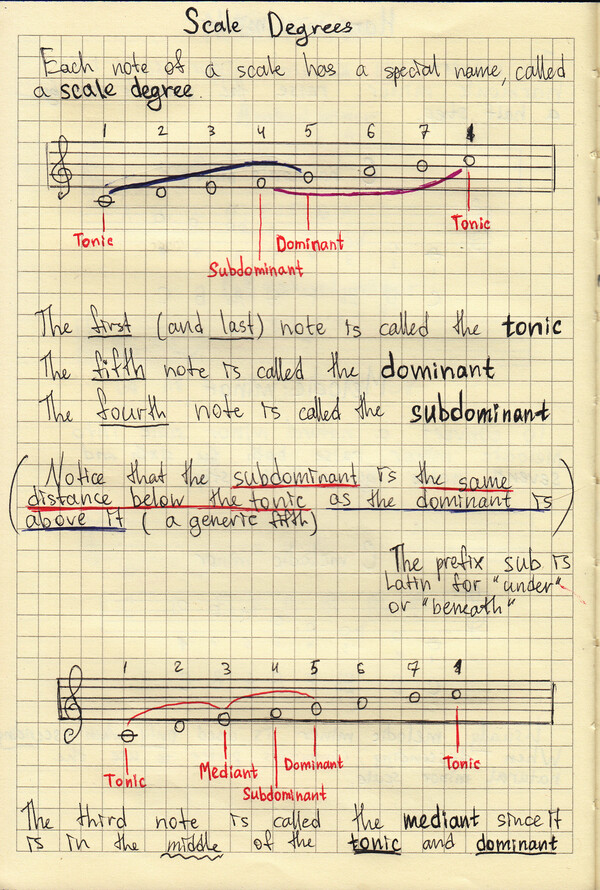 Scale Degrees
Each note of a scale has a special name, called
a scale degree.
1 2 3 4 5 6 7 1
Tonic
Subdominant
Dominant
Tonic
The first (and last) note is called the tonic
The fifth note is called the dominant
The fourth note is called the subdominant
(Notice that the subdominant is the same
distance below the tonic as the dominant is
above it (a generic fifth))
The prefix sub is
Latin for "under"
or "beneath"
1 2 3 4 5 6 7 1
Tonic
Mediant
Subdominant
Dominant
Tonic
The third note is called the mediant since it
is in the middle of the tonic and dominant